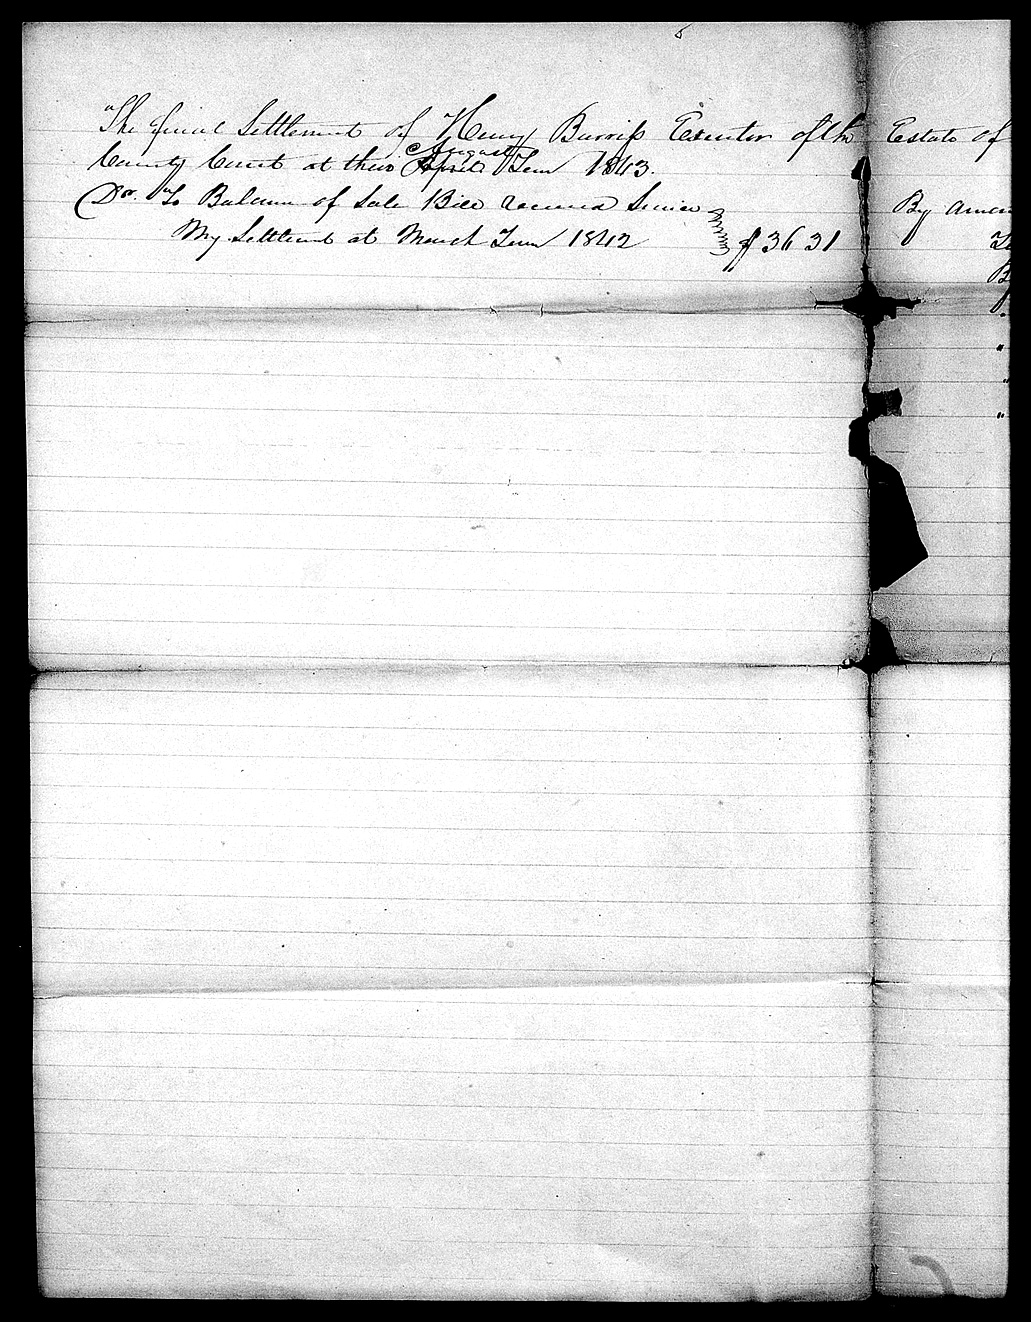 The final Settlement of Henry Burriss Executor of the Estate of
County Court at their April August Term 1843.
Dr. To Balance of Sale Bill received Since
My Settlement at March Term 1842 $ 36 31
By amou